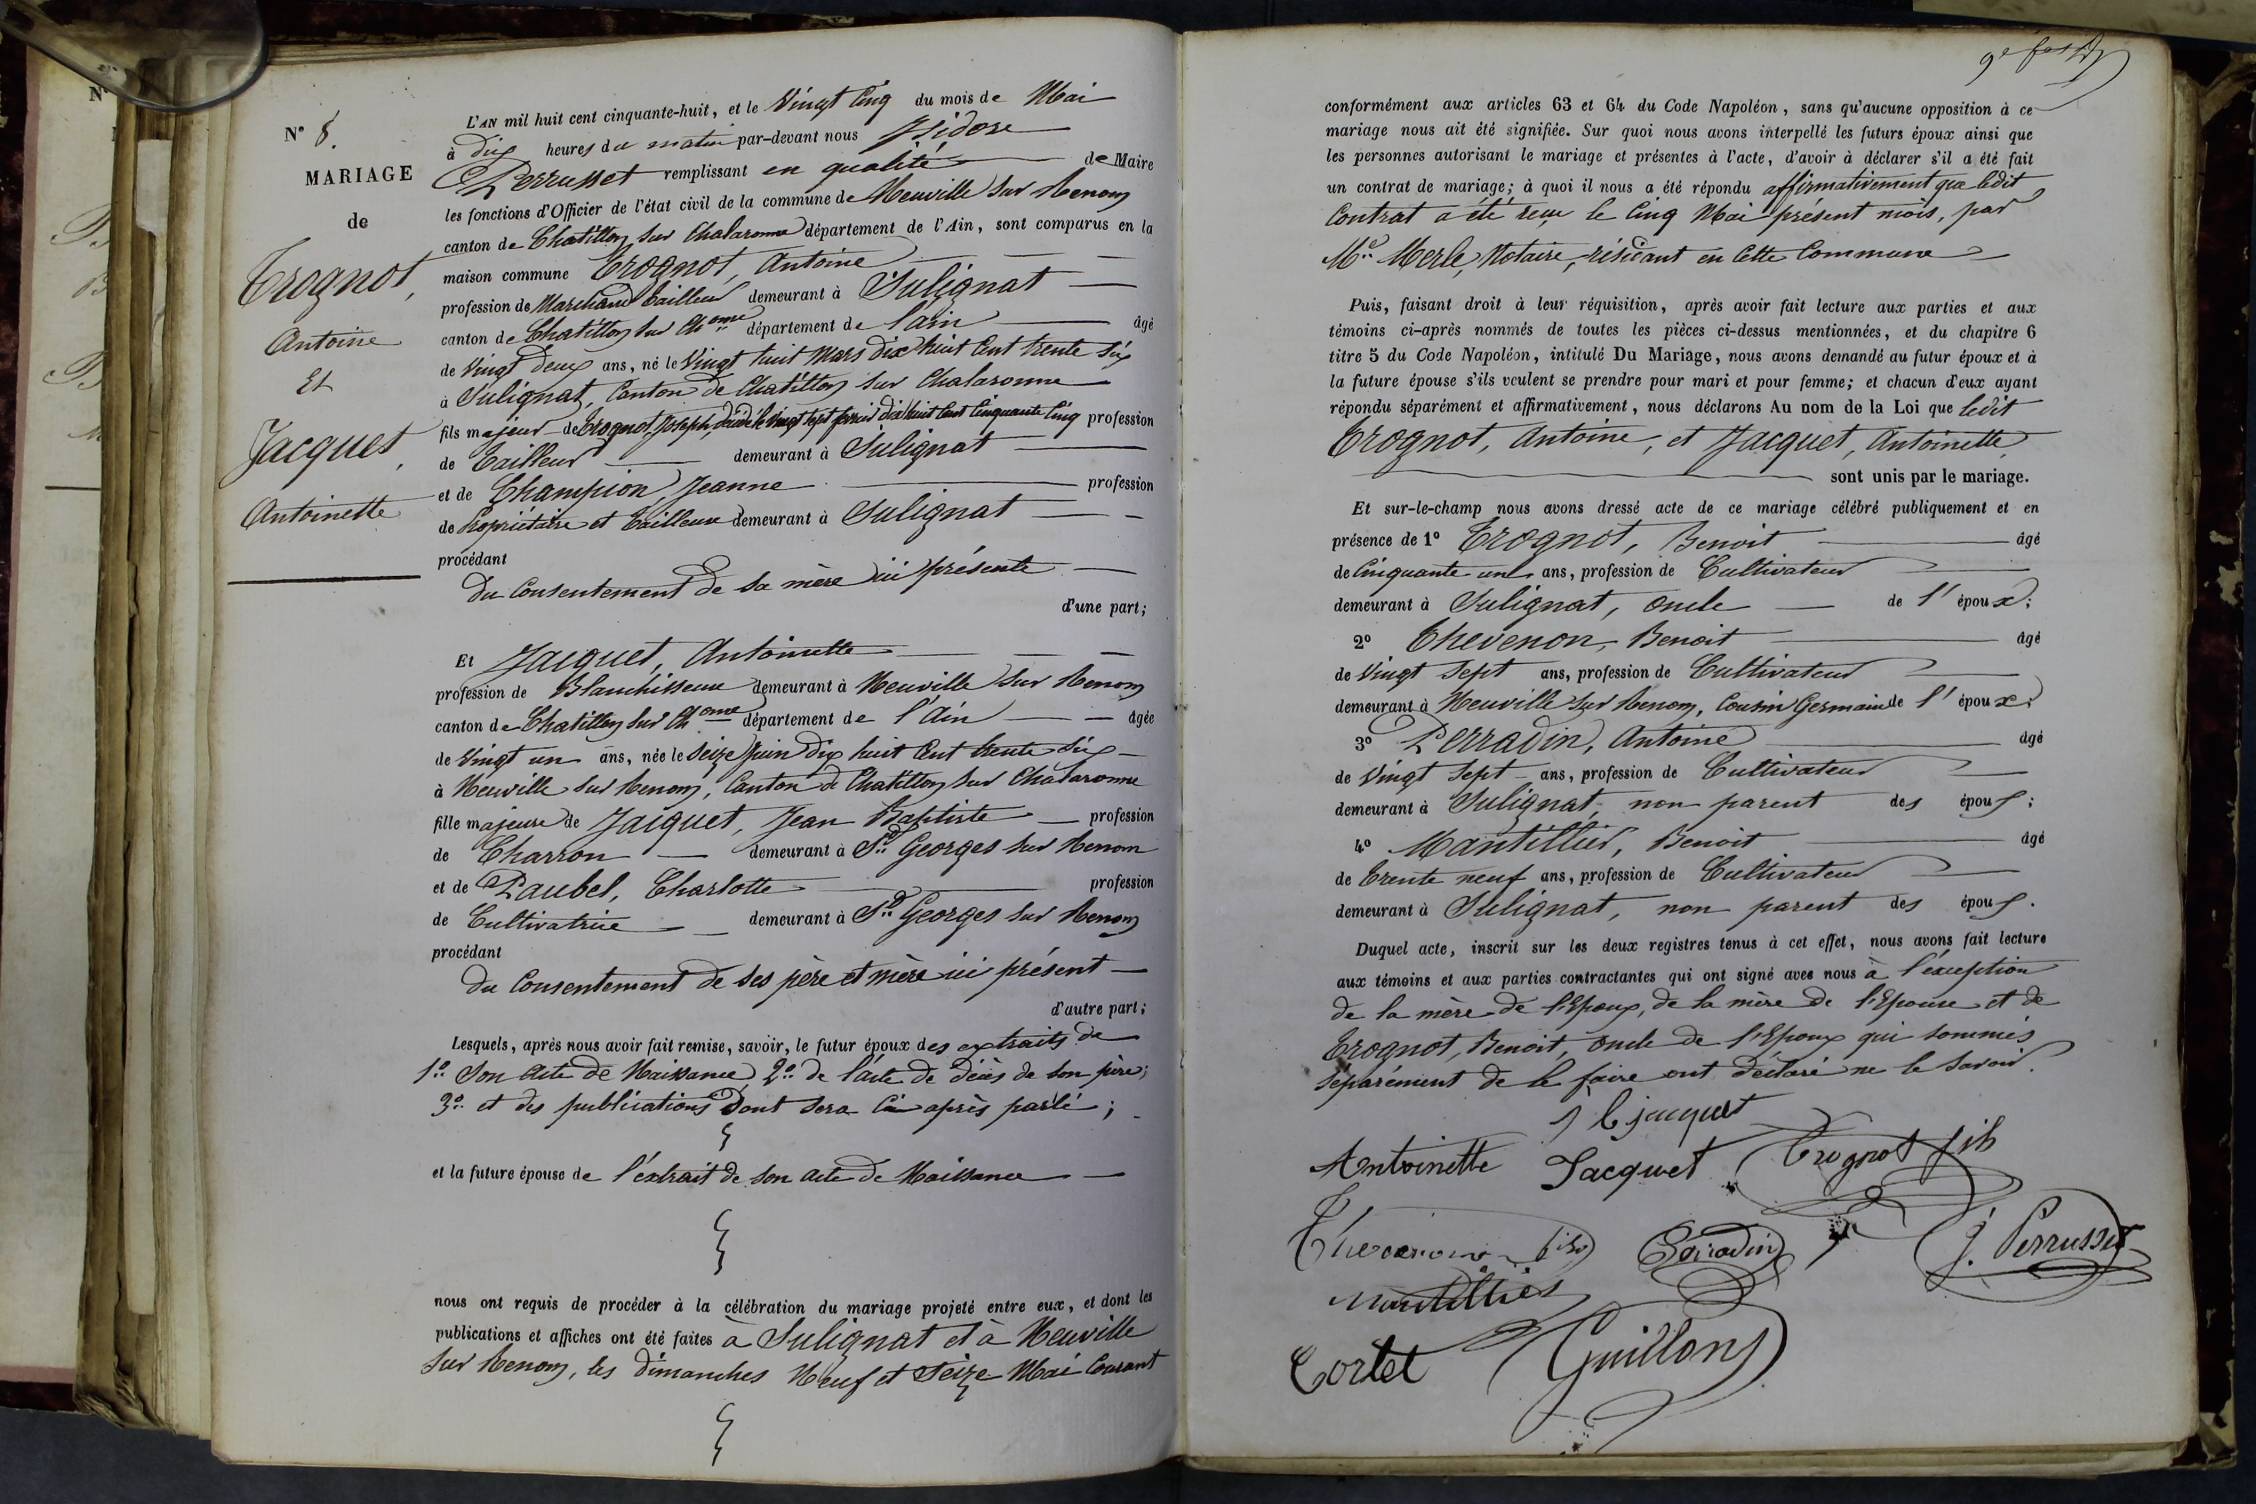 N° 8.
MARIAGE
de
Trognot,
Antoine
Et
Jacquet,
Antoinette
L'AN mil huit cent cinquante-huit, et le Vingt Cinq du mois de Mai
à dix heures du matin par-devant nous Isidore
Perrusset remplissant en qualité de Maire
les fonctions d'Officier de l'état civil de la commune de Neuville sur Renom
canton de Chatillon sur Chalaronne département de l'Ain, sont comparus en la
maison commune Trognot, Antoine
profession de Marchand tailleur demeurant à Sulignat
canton de Chatillon sur Chonne département de l'ain âgé
de Vingt deux ans, né le Vingt huit Mars dix huit Cent trente six
à Sulignat, Canton de Chatillon sur Chalaronne
fils majeur de Trognot, Joseph, décédé le vingt sept février dix huit Cent Cinquante Cinq profession
de Tailleur demeurant à Sulignat
et de Champion, Jeanne profession
de Propriétaire et tailleuse demeurant à Sulignat
procédant
du Consentement de sa mère ici présente
d'une part;
Et Jacquet, Antoinette
profession de Blanchisseuse demeurant à Neuville sur Renom
canton de Chatillon sur Chonne département de l'Ain âgée
de Vingt un ans, née le Seize Juin dix huit Cent trente six
à Neuville sur Renom, Canton de Chatillon sur Chalaronne
fille majeure de Jacquet, Jean Baptiste profession
de Charron demeurant à St Georges sur Renom
et de Paubel, Charlotte profession
de Cultivatrice demeurant à St Georges sur Renom
procédant
du Consentement de ses père et mère ici présent
d'autre part;
Lesquels, après nous avoir fait remise, savoir, le futur époux des extraits de
1° Son acte de Naissance, 2° de l'acte de décès de son père;
3° et des publications dont sera Ci après parlé;
et la future épouse de l'extrait de son acte de Naissance
nous ont requis de procéder à la célébration du mariage projeté entre eux, et dont les
publications et affiches ont été faites à Sulignat et à Neuville
sur Renom, les dimanches Neuf et Seize Mai Courant
conformément aux articles 63 et 64 du Code Napoléon, sans qu'aucune opposition à ce
mariage nous ait été signifiée. Sur quoi nous avons interpellé les futurs époux ainsi que
les personnes autorisant le mariage et présentes à l'acte, d'avoir à déclarer s'il a été fait
un contrat de mariage; à quoi il nous a été répondu affirmativement que ledit
Contrat a été reçu le Cinq Mai présent mois, par
Me Merle, Notaire, résidant en Cette Commune
Puis, faisant droit à leur réquisition, après avoir fait lecture aux parties et aux
témoins ci-après nommés de toutes les pièces ci-dessus mentionnées, et du chapitre 6
titre 5 du Code Napoléon, intitulé Du Mariage, nous avons demandé au futur époux et à
la future épouse s'ils veulent se prendre pour mari et pour femme; et chacun d'eux ayant
répondu séparément et affirmativement, nous déclarons Au nom de la Loi que ledit
Trognot, Antoine, et Jacquet, Antoinette,
sont unis par le mariage.
Et sur-le-champ nous avons dressé acte de ce mariage célébré publiquement et en
présence de 1° Trognot, Benoit âgé
de Cinquante un ans, profession de Cultivateur
demeurant à Sulignat, oncle de l'époux;
2° Thevenon, Benoit âgé
de Vingt Sept ans, profession de Cultivateur
demeurant à Neuville sur Renom, Cousin Germain de l'époux;
3° Perradin, Antoine âgé
de Vingt Sept ans, profession de Cultivateur
demeurant à Sulignat, non parent des époux;
4° Mantillier, Benoit âgé
de Trente neuf ans, profession de Cultivateur
demeurant à Sulignat, non parent des époux.
Duquel acte, inscrit sur les deux registres tenus à cet effet, nous avons fait lecture
aux témoins et aux parties contractantes qui ont signé avec nous à l'exception
de la mère de l'Epoux, de la mère de l'Epouse et de
Trognot, Benoit, oncle de l'Epoux qui sommés
séparément de le faire ont déclaré ne le savoir.
jacquet
Antoinette Jacquet Trognot fils
Thevenon fils Pairadin J. Perrusset
Mantillier
Cortet Guillon